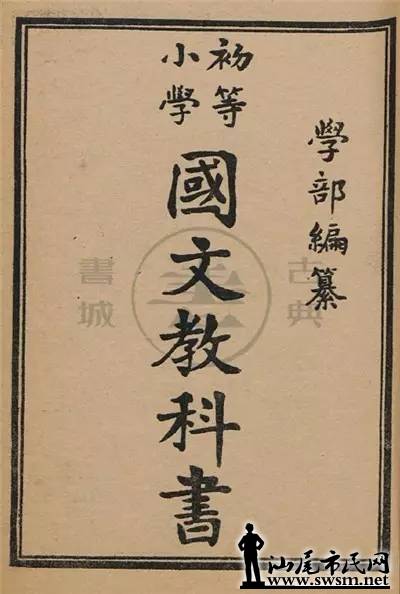 學部編纂
初等
小學
國文教科書
古典
書城
汕尾市民网
www.swsm.net